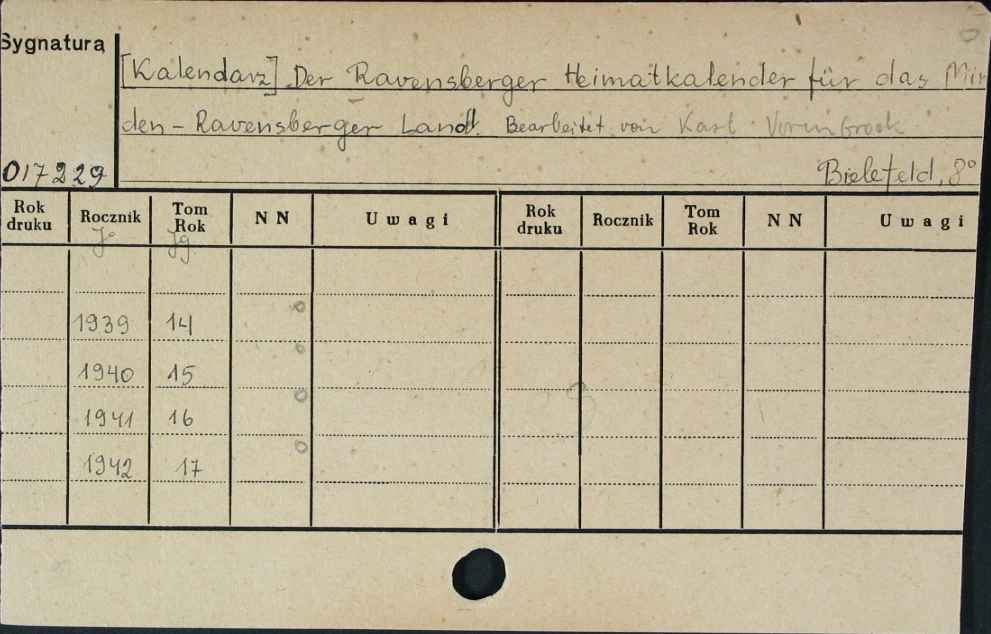 Sygnatura
[Kalendarz] Der Ravensberger Heimatkalender für das Min
den - Ravensberger Land. Bearbeitet von Karl Vormbrock
017229
Bielefeld, 8°
Rok druku Rocznik Tom Rok NN Uwagi Rok druku Rocznik Tom Rok NN Uwagi
Jg.
1939 14
1940 15
1941 16
1942 17